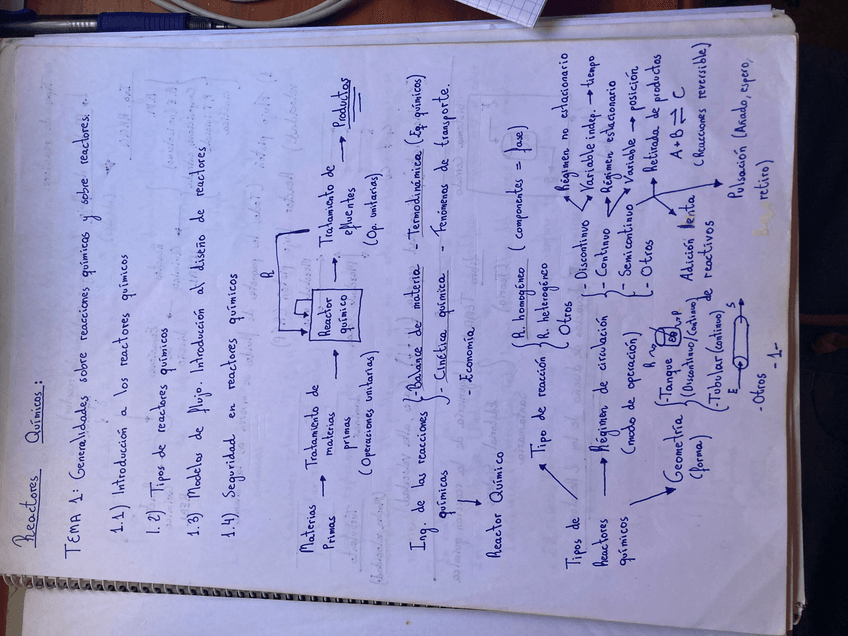 Reactores Químicos:
TEMA 1: Generalidades sobre reacciones químicas y sobre reactores.
1.1) Introducción a los reactores químicos
1.2) Tipos de reactores químicos
1.3) Modelos de flujo. Introducción al diseño de reactores
1.4) Seguridad en reactores químicos
R
Materias Primas → Tratamiento de materias primas (Operaciones unitarias) → Reactor químico → Tratamiento de efluentes (Op. unitarias) → Productos
Ing. de las reacciones químicas
- Balance de materia - Termodinámica (Eq. químicos)
- Cinética química - Fenómenos de transporte.
- Economía
↓
Reactor Químico
Tipos de Reactores químicos
Tipo de reacción
R. homogéneo (componentes = fase)
R. heterogéneo
Otros
Régimen de circulación (modo de operación)
- Discontinuo
Régimen no estacionario
Variable indep. → tiempo
- Continuo
Régimen estacionario
Variable → posición
- Semicontinuo
Retirada de productos
A + B ⇌ C
(Reacciones reversible)
Adición lenta de reactivos
Pulsación (Añado, espero, retiro)
- Otros
Geometría (forma)
- Tanque
(Discontinuo/continuo)
R
P
- Tubular (continuo)
E
S
- Otros
-1-